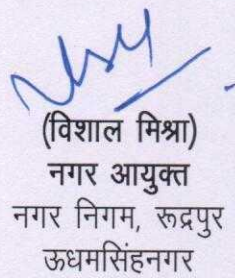 (विशाल मिश्रा)
नगर आयुक्त
नगर निगम, रूद्रपुर
ऊधमसिंहनगर